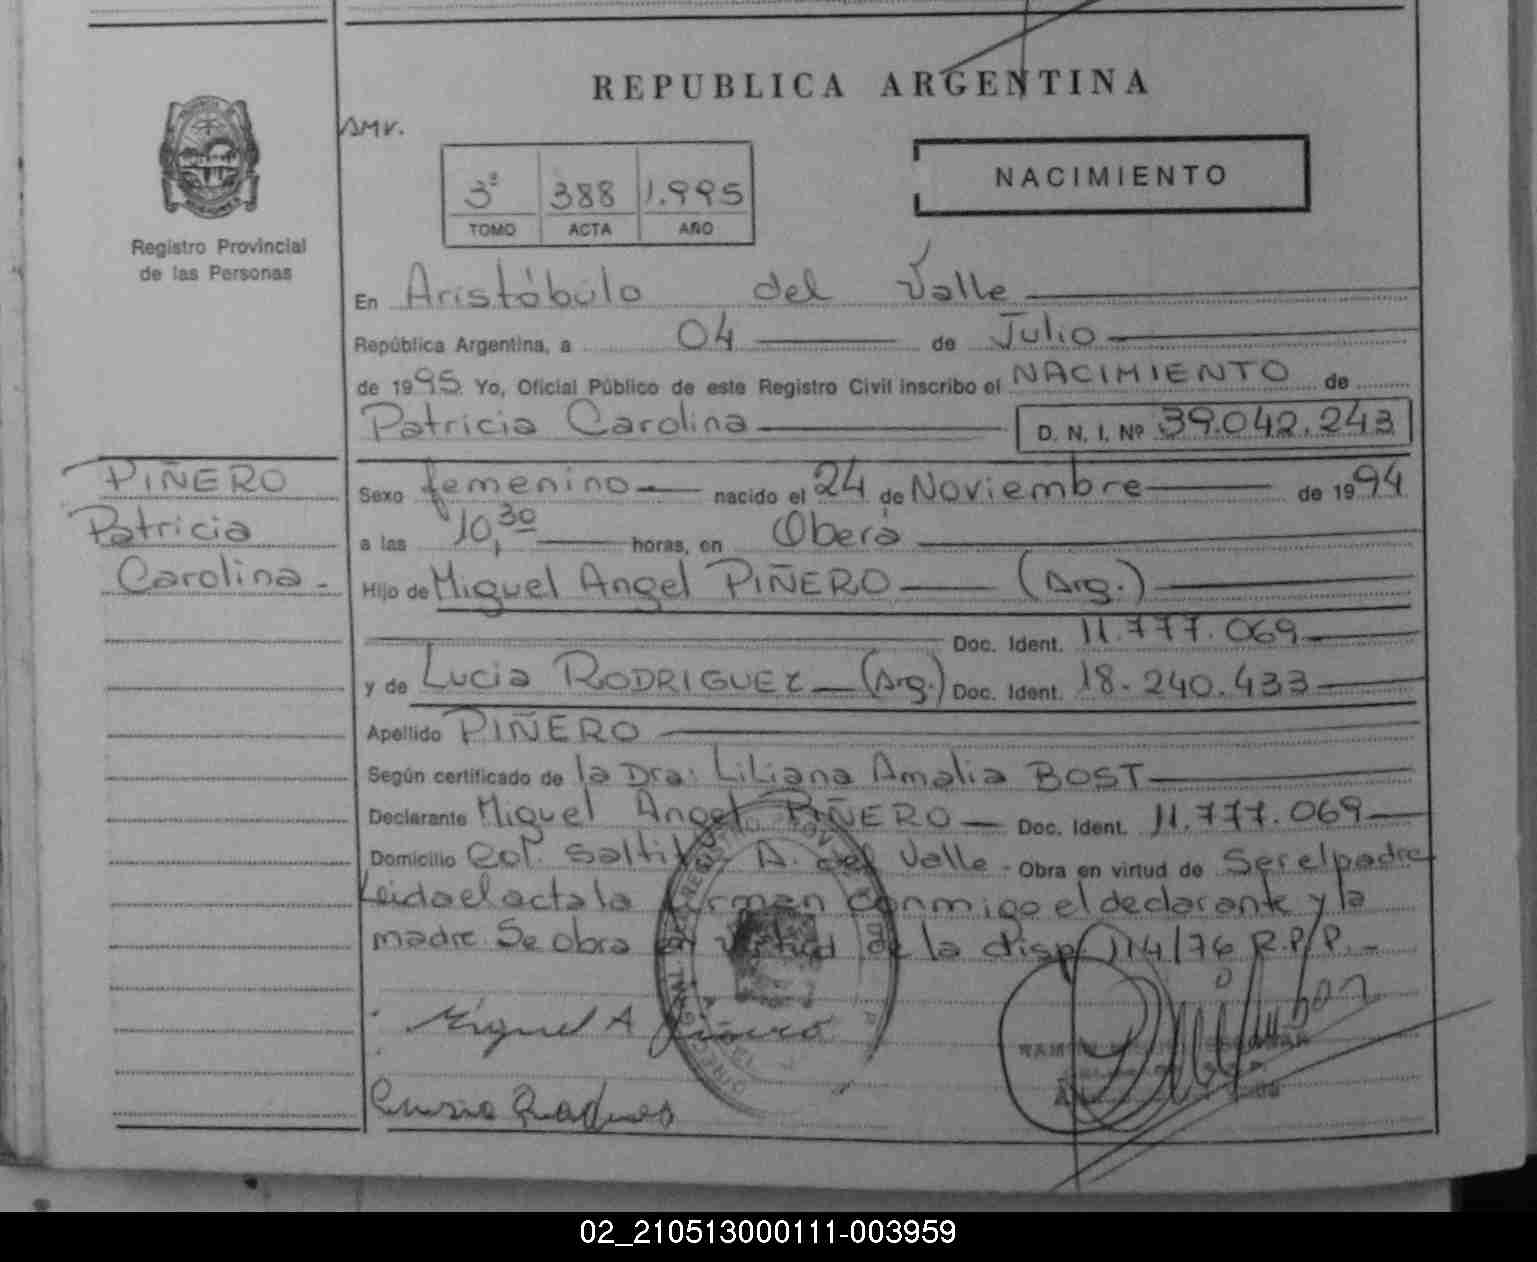 REPUBLICA ARGENTINA
AMV.
Registro Provincial
de las Personas
3ª 388 1.995
TOMO ACTA AÑO
NACIMIENTO
En Aristóbulo del Valle
República Argentina, a 04 de Julio
de 1995 Yo, Oficial Público de este Registro Civil inscribo el NACIMIENTO de
Patricia Carolina D. N. I. Nº 39.042.243
PIÑERO
Patricia
Carolina.-
Sexo femenino nacido el 24 de Noviembre de 1994
a las 10,30 horas, en Oberá
Hijo de Miguel Angel PIÑERO (Arg.)
Doc. Ident. 11.777.069
y de Lucia RODRIGUEZ (Arg.) Doc. Ident. 18.240.433
Apellido PIÑERO
Según certificado de la Dra: Liliana Amalia BOST
Declarante Miguel Angel PIÑERO Doc. Ident. 11.777.069
Domicilio Col. Saltito A. del Valle - Obra en virtud de Ser el padre
Leida el acta la firman conmigo el declarante y la
madre. Se obra en virtud de la disp. 114/76 R.P.P.-
Miguel A Piñero
02_210513000111-003959